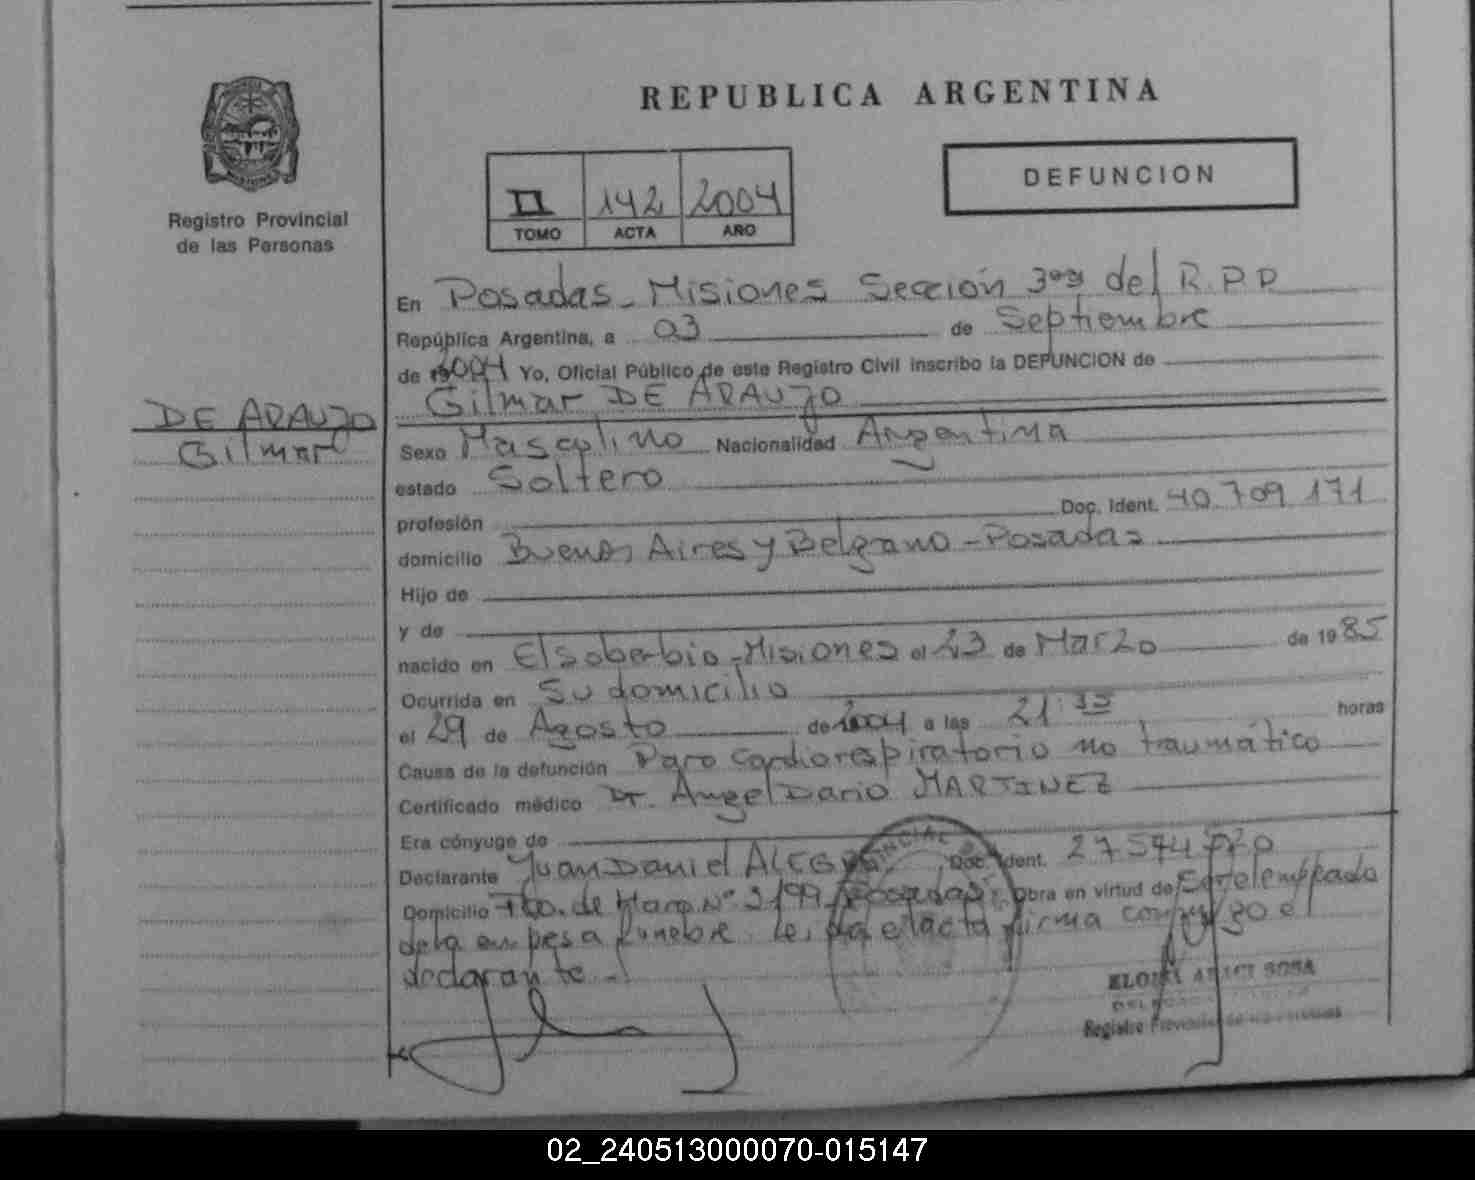 REPUBLICA ARGENTINA
DEFUNCION
II 142 2004
TOMO ACTA AÑO
Registro Provincial
de las Personas
DE ARAUJO
Gilmar
En Posadas - Misiones Sección 3era del R.P.P
República Argentina, a 03 de Septiembre
de 2004 Yo, Oficial Público de este Registro Civil inscribo la DEFUNCION de
Gilmar DE ARAUJO
Sexo Masculino Nacionalidad Argentina
estado Soltero
profesión Doc. Ident. 40.709.171
domicilio Buenos Aires y Belgrano - Posadas
Hijo de
y de
nacido en El Soberbio - Misiones el 23 de Marzo de 1985
Ocurrida en Su domicilio
el 29 de Agosto de 2004 a las 21: horas
Causa de la defunción Paro cardiorespiratorio no traumático
Certificado médico Dr. Angel Dario MARTINEZ
Era cónyuge de
Declarante Juan Daniel Doc. Ident. 27.574
Domicilio Fco. de Haro Nº Posadas Obra en virtud de Ser el empleado
de la empresa funebre. Leida el acta firma conmigo el
declarante.-
SOSA
Registro Provincial de las Personas
02_240513000070-015147